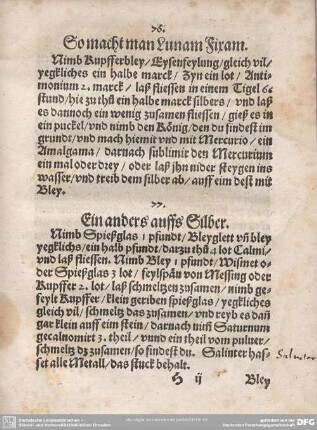 76.
So macht man Lunam Fixam.
Nimb Kupfferbley/Eysenfeylung/gleich vil/
yegkliches ein halbe marck/ Zyn ein lot/ Anti-
monium 2. marck/ laß fliessen in einem Tigel 6.
stund/hie zu thů ein halbe marck silbers/ vnd laß
es dannoch ein wenig zusamen fliessen/ gieß es in
ein puckel/vnd nimb den Kőnig/den du findest im
grundt/vnd mach hiemit vnd mit Mercurio/ ein
Amalgama/ darnach sublimir den Mercurium
ein mal oder drey/ oder laß jhn nider steygen ins
wasser/vnd treib dem silber ab/auff eim test mit
Bley.
77.
Ein anders auffs Silber.
Nimb Spießglas 1 pfundt/ Bleyglett vñ bley
yegklichs/ein halb pfundt/darzu thů 4 lot Calmi/
vnd laß fliessen. Nimb Bley 1 pfundt/Wißmet o-
der Spießglas 3 lot/ feylspån von Messing oder
Kupffer 2. lot/laß schmeltzen zusamen/ nimb ge-
feylt Kupffer/klein geriben spießglas/yegkliches
gleich vil/ schmeltz das zusamen/vnd reyb es dañ
gar klein auff ein stein/ darnach niñ Saturnum
gecalnomirt 3. theil/ vund ein theil vom puluer/
schmeltz dz zusamen/so findest du. Saliniter has-
set alle Metall/das stuck behalt.
H ij
Bley